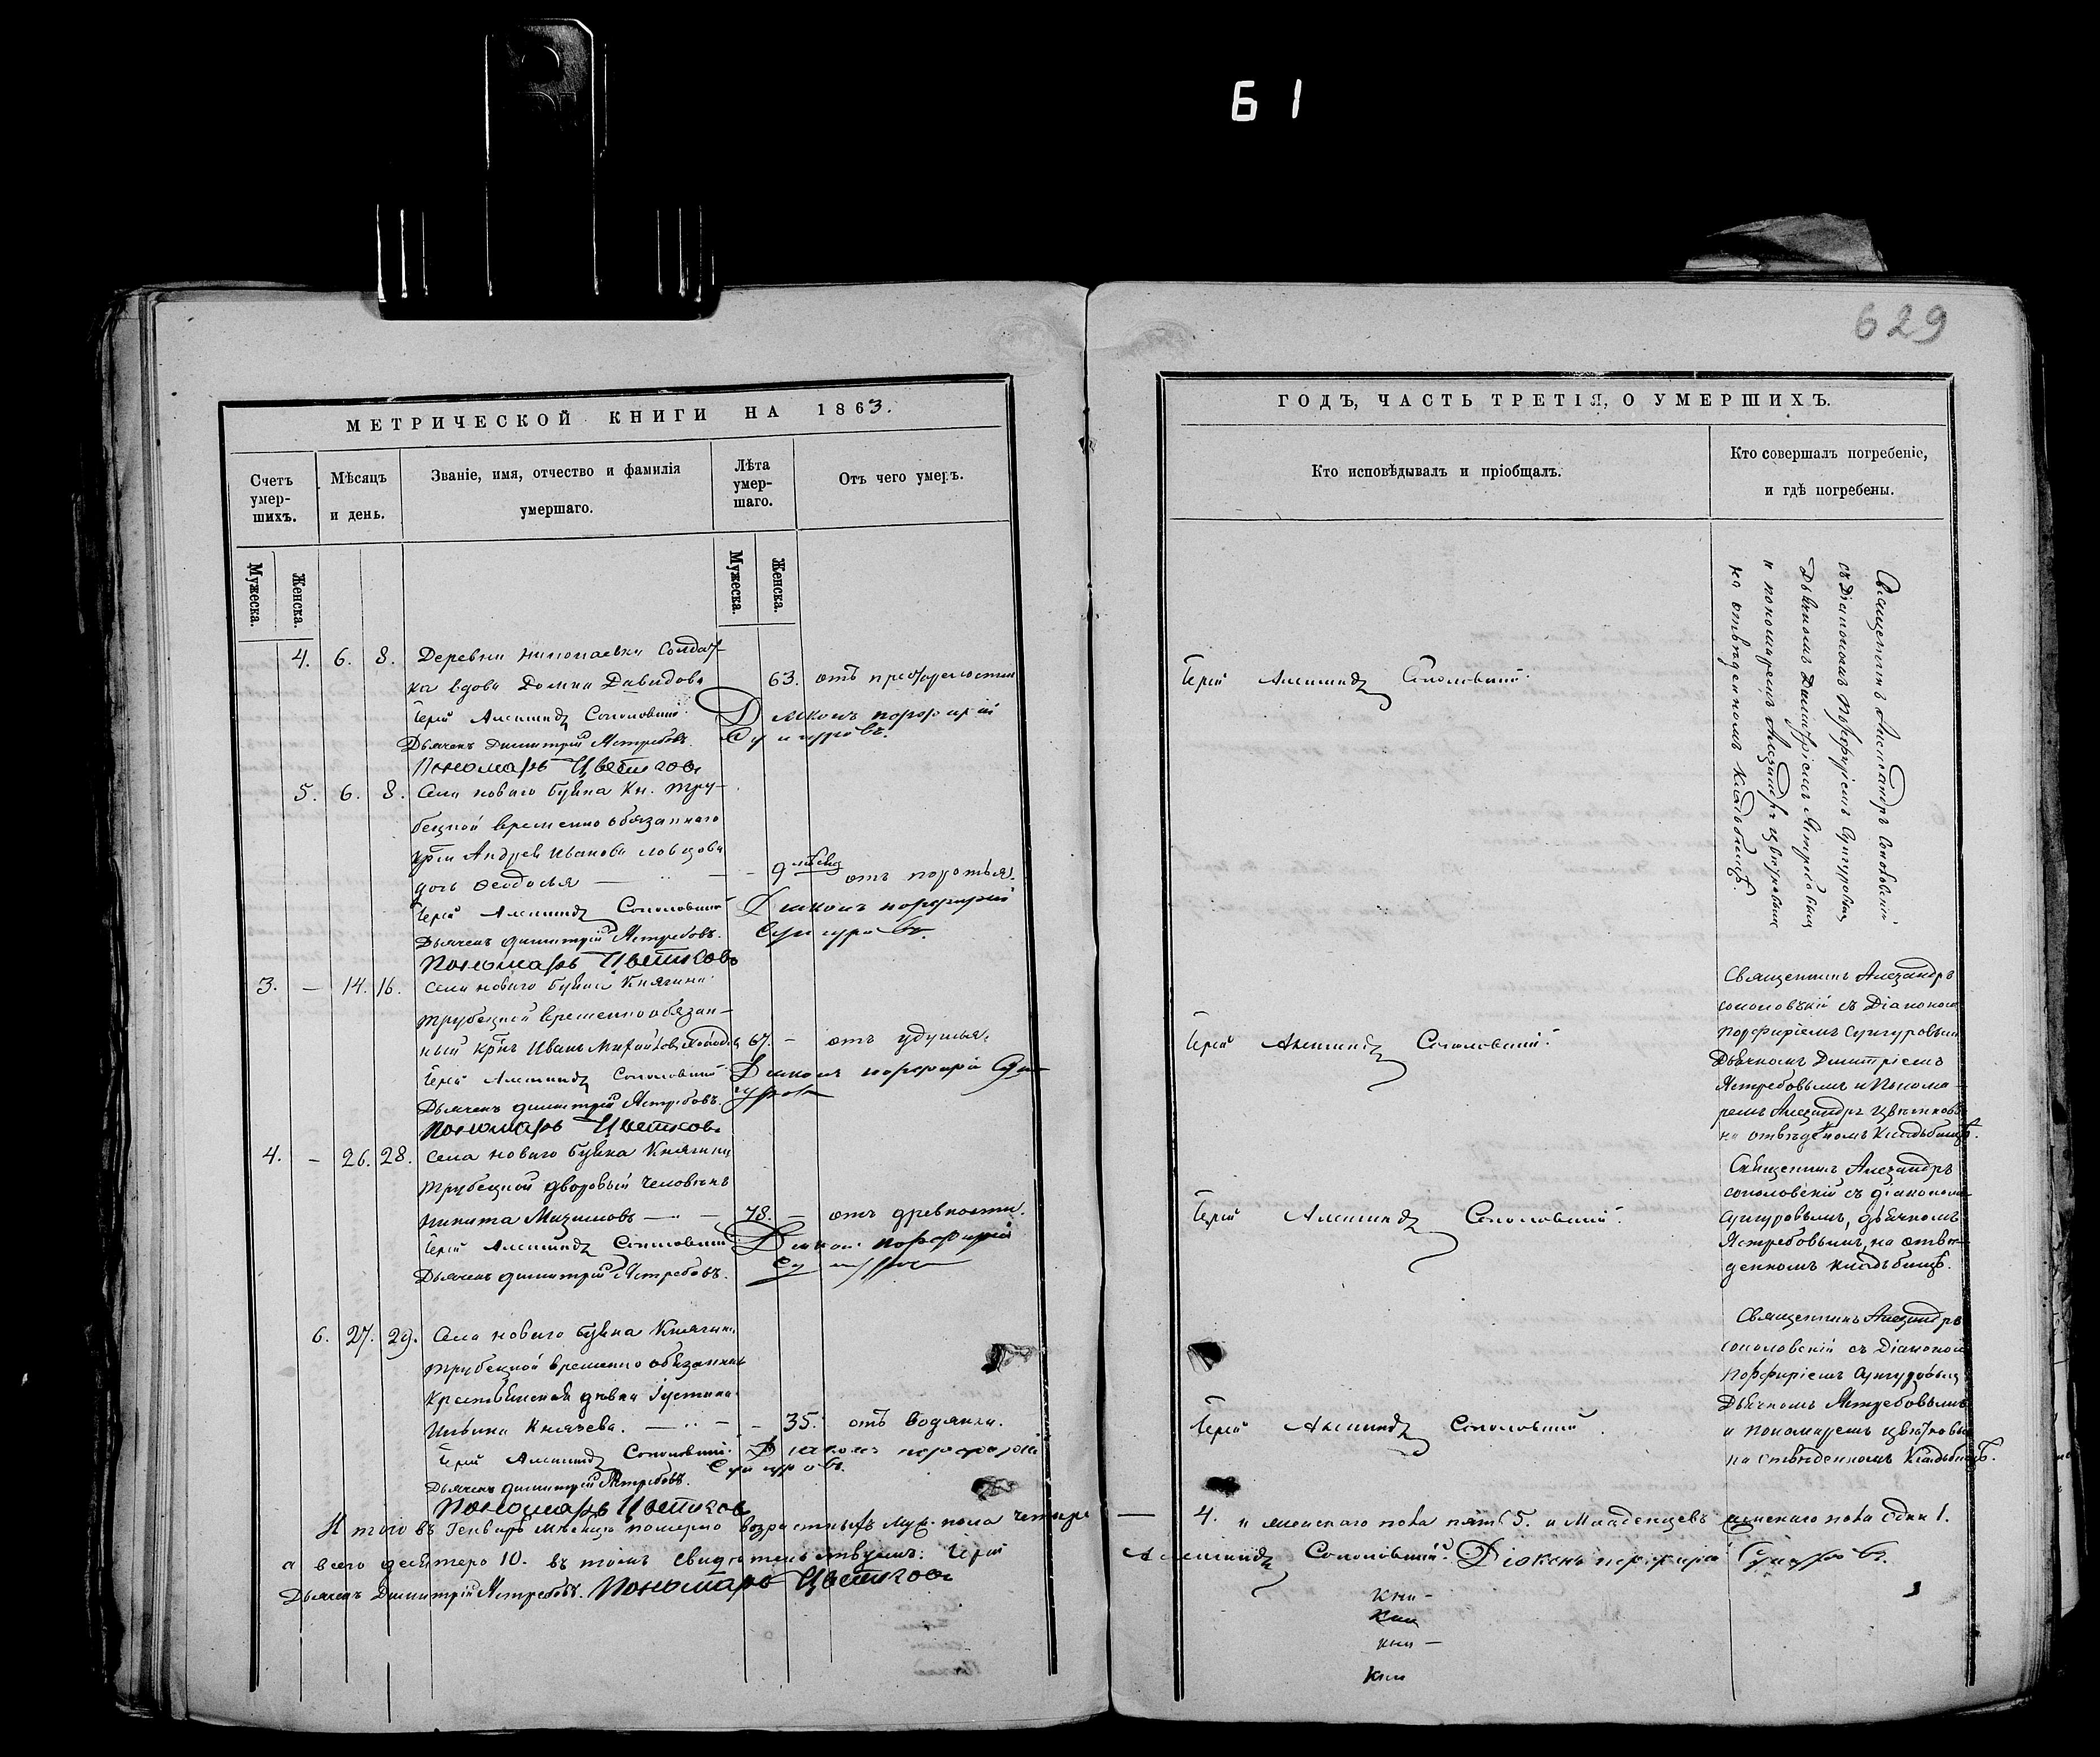 61
629
МЕТРИЧЕСКОЙ КНИГИ НА 1863.
Счетъ умер-шихъ.
Мѣсяцъ и день.
Званіе, имя, отчество и фамилія умершаго.
Лѣта умер-шаго.
Отъ чего умеръ.
Мужеска.
Женска.
Мужеска.
Женска.
4. 6. 8. Деревни Николаевки Солдат-
ка вдова Домна Давидова 63. отъ престарелости
Іерей Александръ Соколовскій. Діаконъ Порфирій
Дьячекъ Димитрій Ястребовъ. Сунгуровъ.
Пономарь Цветковъ
5. 6. 8. Села новаго Буяна Кн. Тру-
бецкой временно обязаннаго
крѣн Андрея Иванова
дочь Феодосья — 9 мѣсяц отъ
Іерей Александръ Соколовскій Діаконъ Порфирій
Дьячекъ Димитрій Ястребовъ. Сунгуровъ.
Пономарь Цветковъ
3. — 14. 16. Села новаго Буяна Княгини
Трубецкой временнообязан-
ный крнъ Иванъ 67. — отъ удушья.
Іерей Александръ Соколовскій Діаконъ Порфирій Сун-
Дьячекъ Димитрій Ястребовъ. гуровъ
Пономарь Цветковъ
4. — 26. 28. Села новаго Буяна Княгини
Трубецкой дворовый человѣкъ
Никита Максимовъ — 78. — отъ древности.
Іерей Александръ Соколовскій Діаконъ Порфирій
Дьячекъ Димитрій Ястребовъ. Сунгуровъ
6. 27. 29. Села новаго Буяна Княгини
Трубецкой временно обязанная
крестьянская дѣвка Іустина
Ильина Князева. — — 35. отъ водянки.
Іерей Александръ Соколовскій. Діаконъ Порфирій
Дьячекъ Димитрій Ястребовъ. Сунгуровъ.
Пономарь Цветковъ
Итого въ Генварѣ мѣсяцѣ померло возрастныхъ муж. пола четыре
а всего десятеро 10. въ томъ свидѣтельствуемъ: Іерей
Дьячекъ Димитрій Ястребовъ. Пономарь Цветковъ
ГОДЪ, ЧАСТЬ ТРЕТІЯ, О УМЕРШИХЪ.
Кто исповѣдывалъ и пріобщалъ.
Кто совершалъ погребеніе, и гдѣ погребены.
Іерей Александръ Соколовскій.
Священникъ Александръ Соколовскій
съ Діакономъ Порфиріемъ Сунгуровымъ
Дьячкомъ Димитріемъ Ястребовымъ
и пономаремъ Александръ Цвѣтковымъ
на отвѣденномъ кладбищѣ.
Іерей Александръ Соколовскій.
Священникъ Александръ
Соколовскій съ Діакономъ
Порфиріемъ Сунгуровымъ
Дьячкомъ Димитріемъ
Ястребовымъ и Понома-
ремъ Александръ Цвѣтковъ
на отвѣденомъ Кладбищѣ.
Іерей Александръ Соколовскій.
Священникъ Александръ
Соколовскій съ діакономъ
Сунгуровымъ, дьячкомъ
Ястребовымъ, на отве-
денномъ кладбищѣ.
Іерей Александръ Соколовскій.
Священникъ Александръ
Соколовскій съ Діакономъ
Порфиріемъ Сунгуровымъ
Дьячкомъ Ястребовымъ
и пономаремъ Цвѣтковымъ
на отвѣденномъ Кладбищѣ.
— 4. и женскаго пола пять 5. и Младенцевъ женскаго пола одна 1.
Александръ Соколовскій. Діаконъ Порфирій Сунгуровъ.